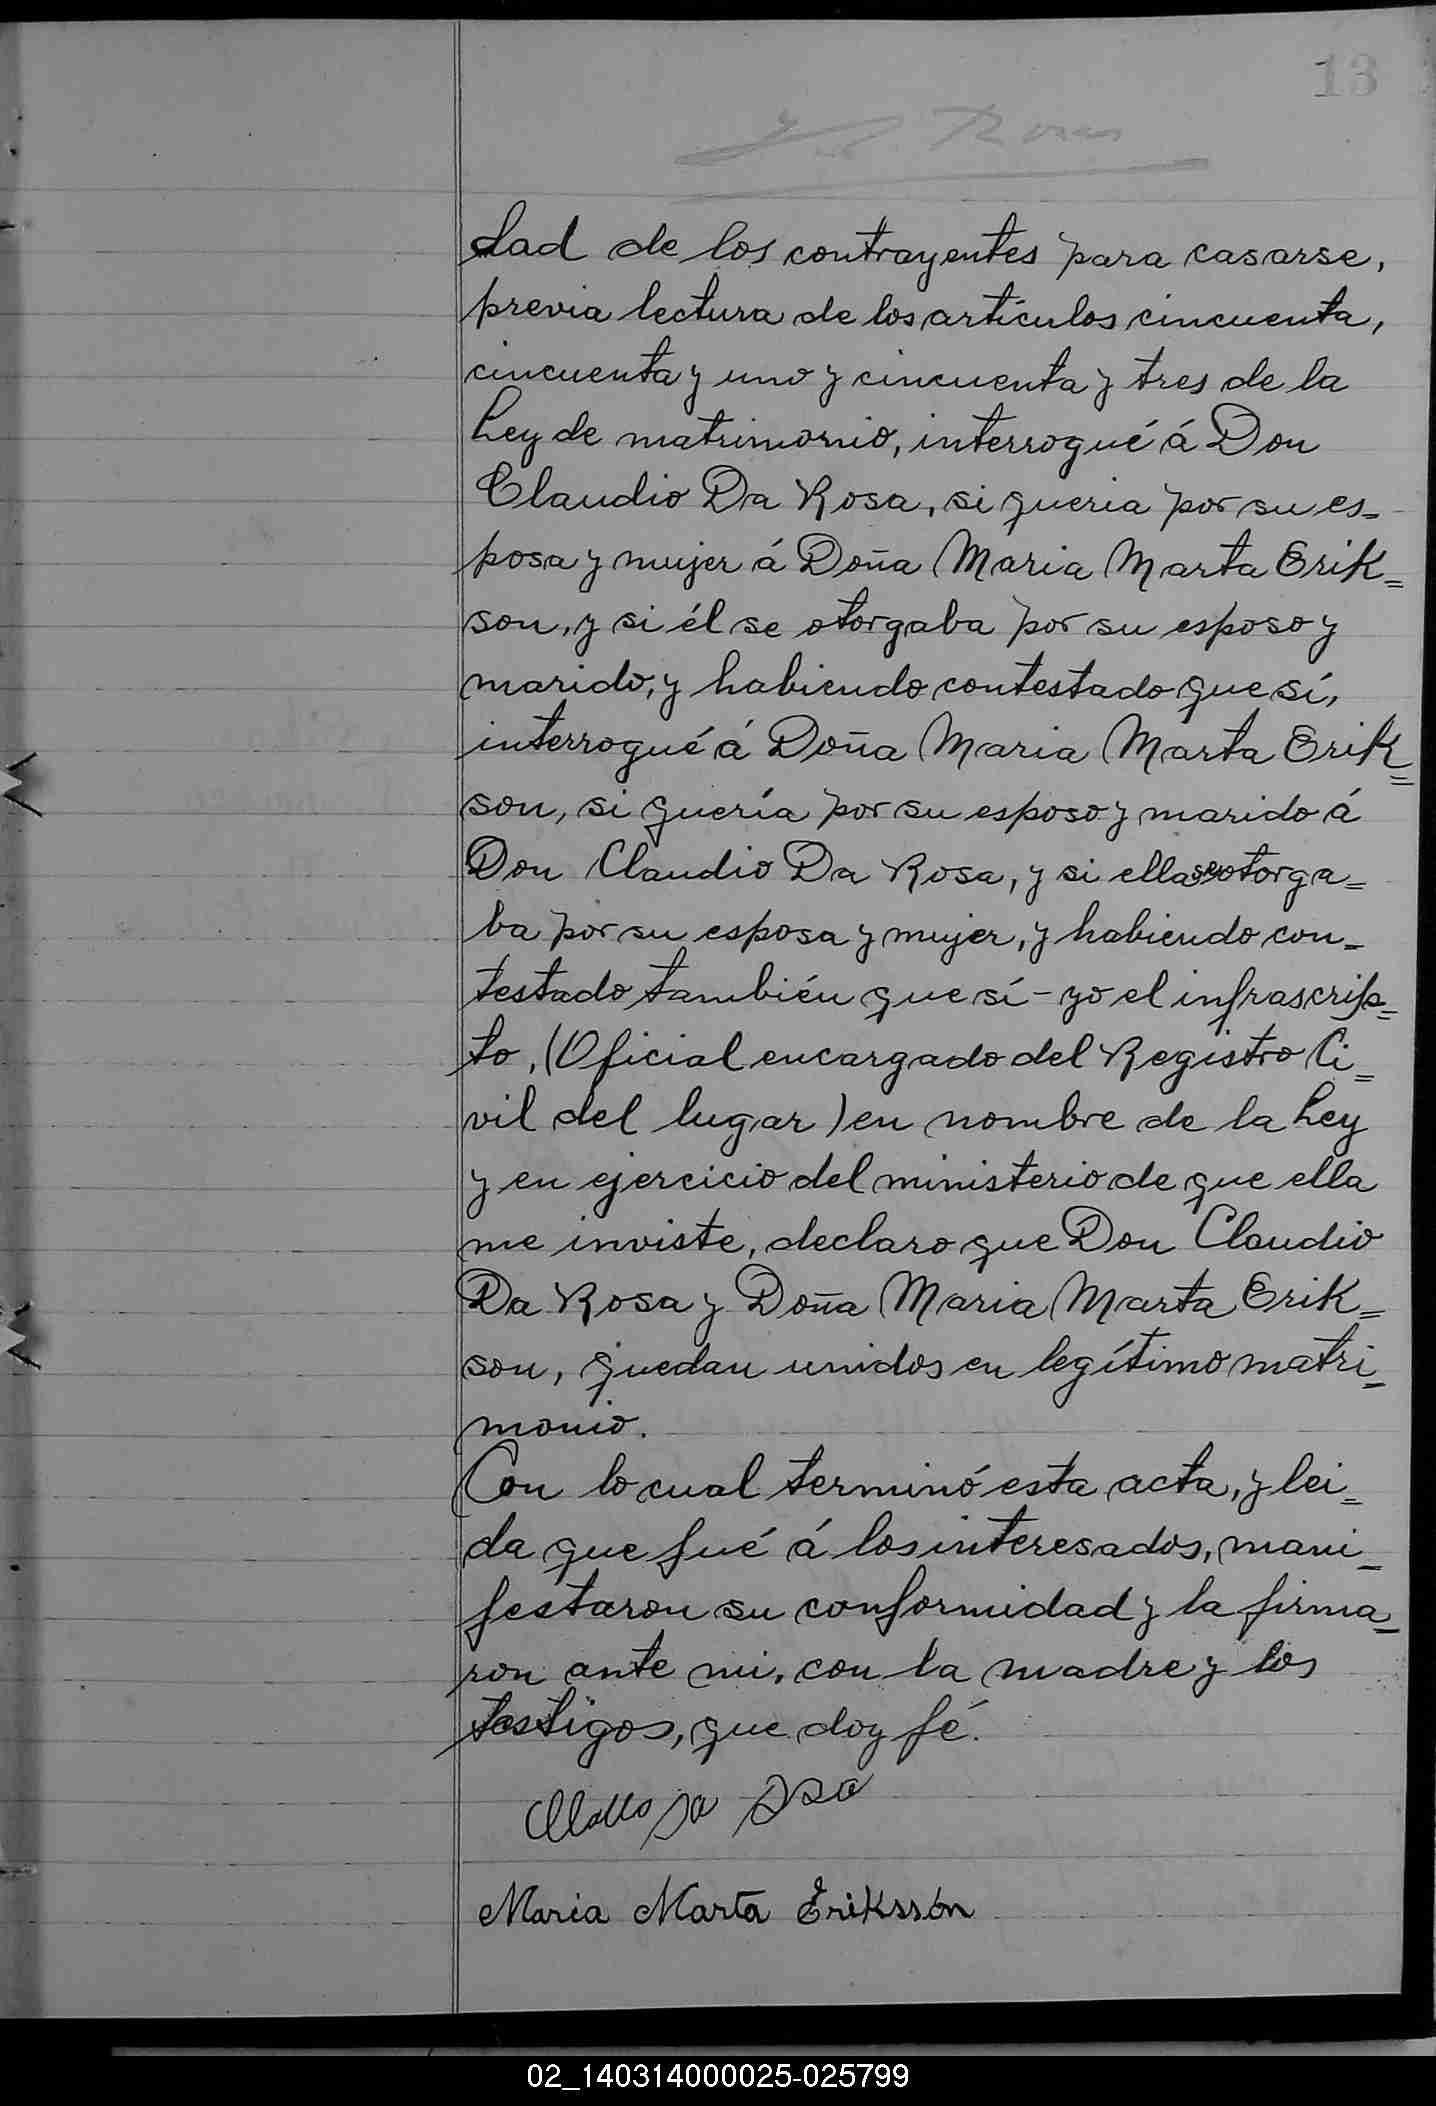 13
dad de los contrayentes para casarse,
previa lectura de los artículos cincuenta,
cincuenta y uno y cincuenta y tres de la
Ley de matrimonio, interrogué á Don
Claudio Da Rosa, si queria por su es=
posa y mujer á Doña Maria Marta Erik=
son, y si él se otorgaba por su esposo y
marido, y habiendo contestado que sí,
interrogué á Doña Maria Marta Erik=
son, si quería por su esposo y marido á
Don Claudio Da Rosa, y si ella se otorga=
ba por su esposa y mujer, y habiendo con=
testado también que sí - yo el infrascrip=
to, (Oficial encargado del Registro Ci=
vil del lugar) en nombre de la Ley
y en ejercicio del ministerio de que ella
me inviste, declaro que Don Claudio
Da Rosa y Doña Maria Marta Erik=
son, quedan unidos en legítimo matri=
monio.
Con lo cual terminó esta acta, y lei=
da que fué á los interesados, mani=
festaron su conformidad y la firma=
ron ante mi, con la madre y los
testigos, que doy fé.
Maria Marta Eriksson
02_140314000025-025799